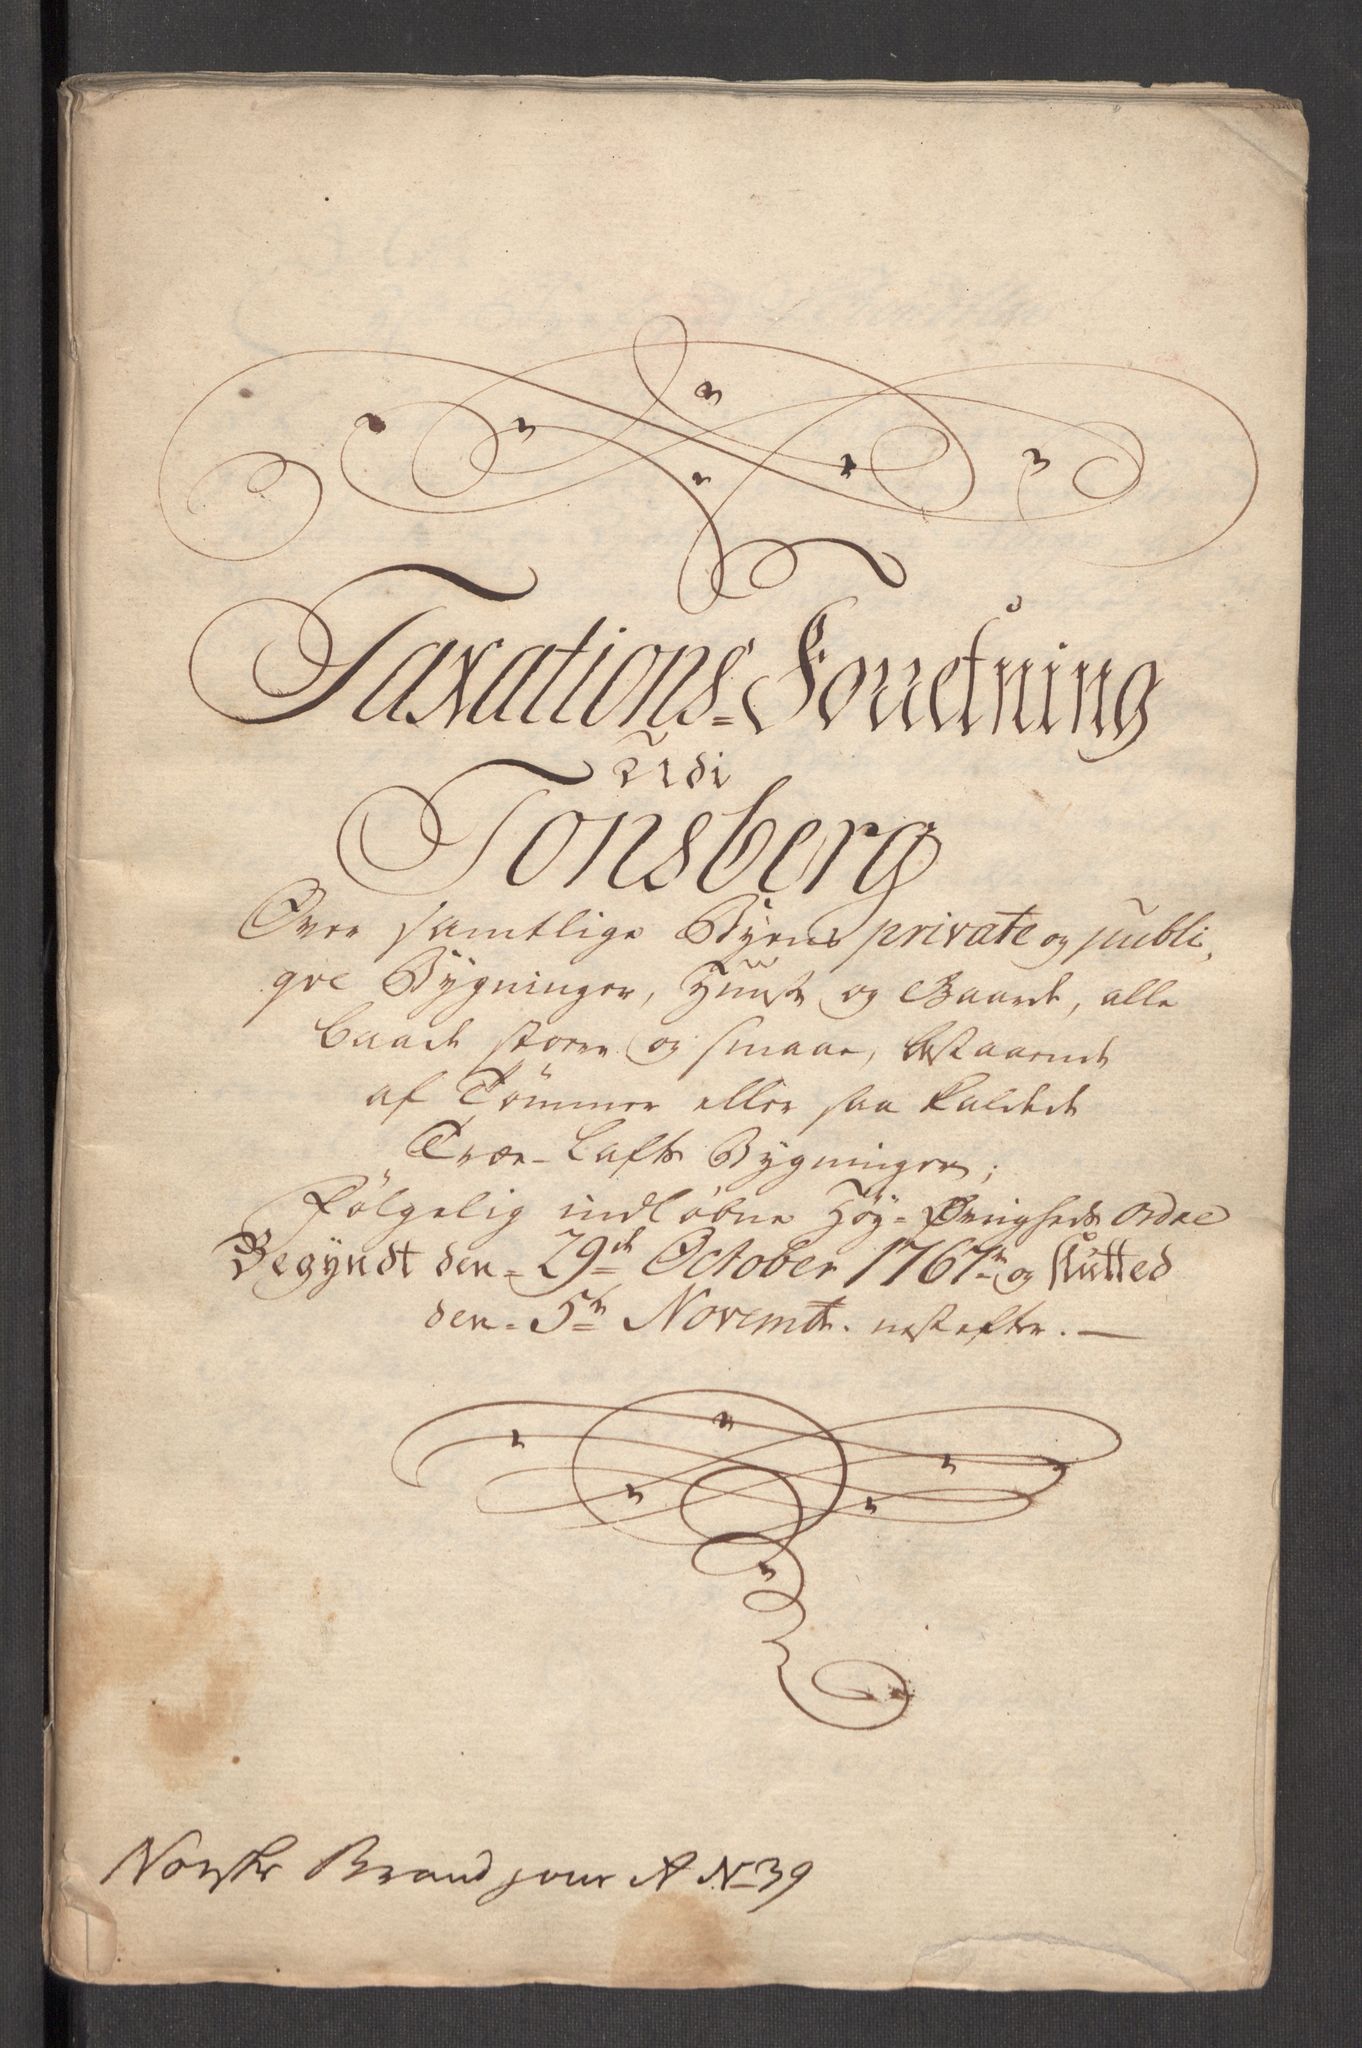 Taxations-Forretning
udi
Tonsberg
Over samtlige Byens private og publi,
qve Bygninger, Huuse og Gaarde, alle
baade store og smaae, bestaaende
af Tömmer eller saa kaldede
Træe-Lafte Bygninger;
Fölgelig indlöbne Høy-Øvrigheds Ordre
Begyndt den 29de October 1767tn og slutted
den 5tn Novembr. nestefter. —
Norske Brand jour A No 39